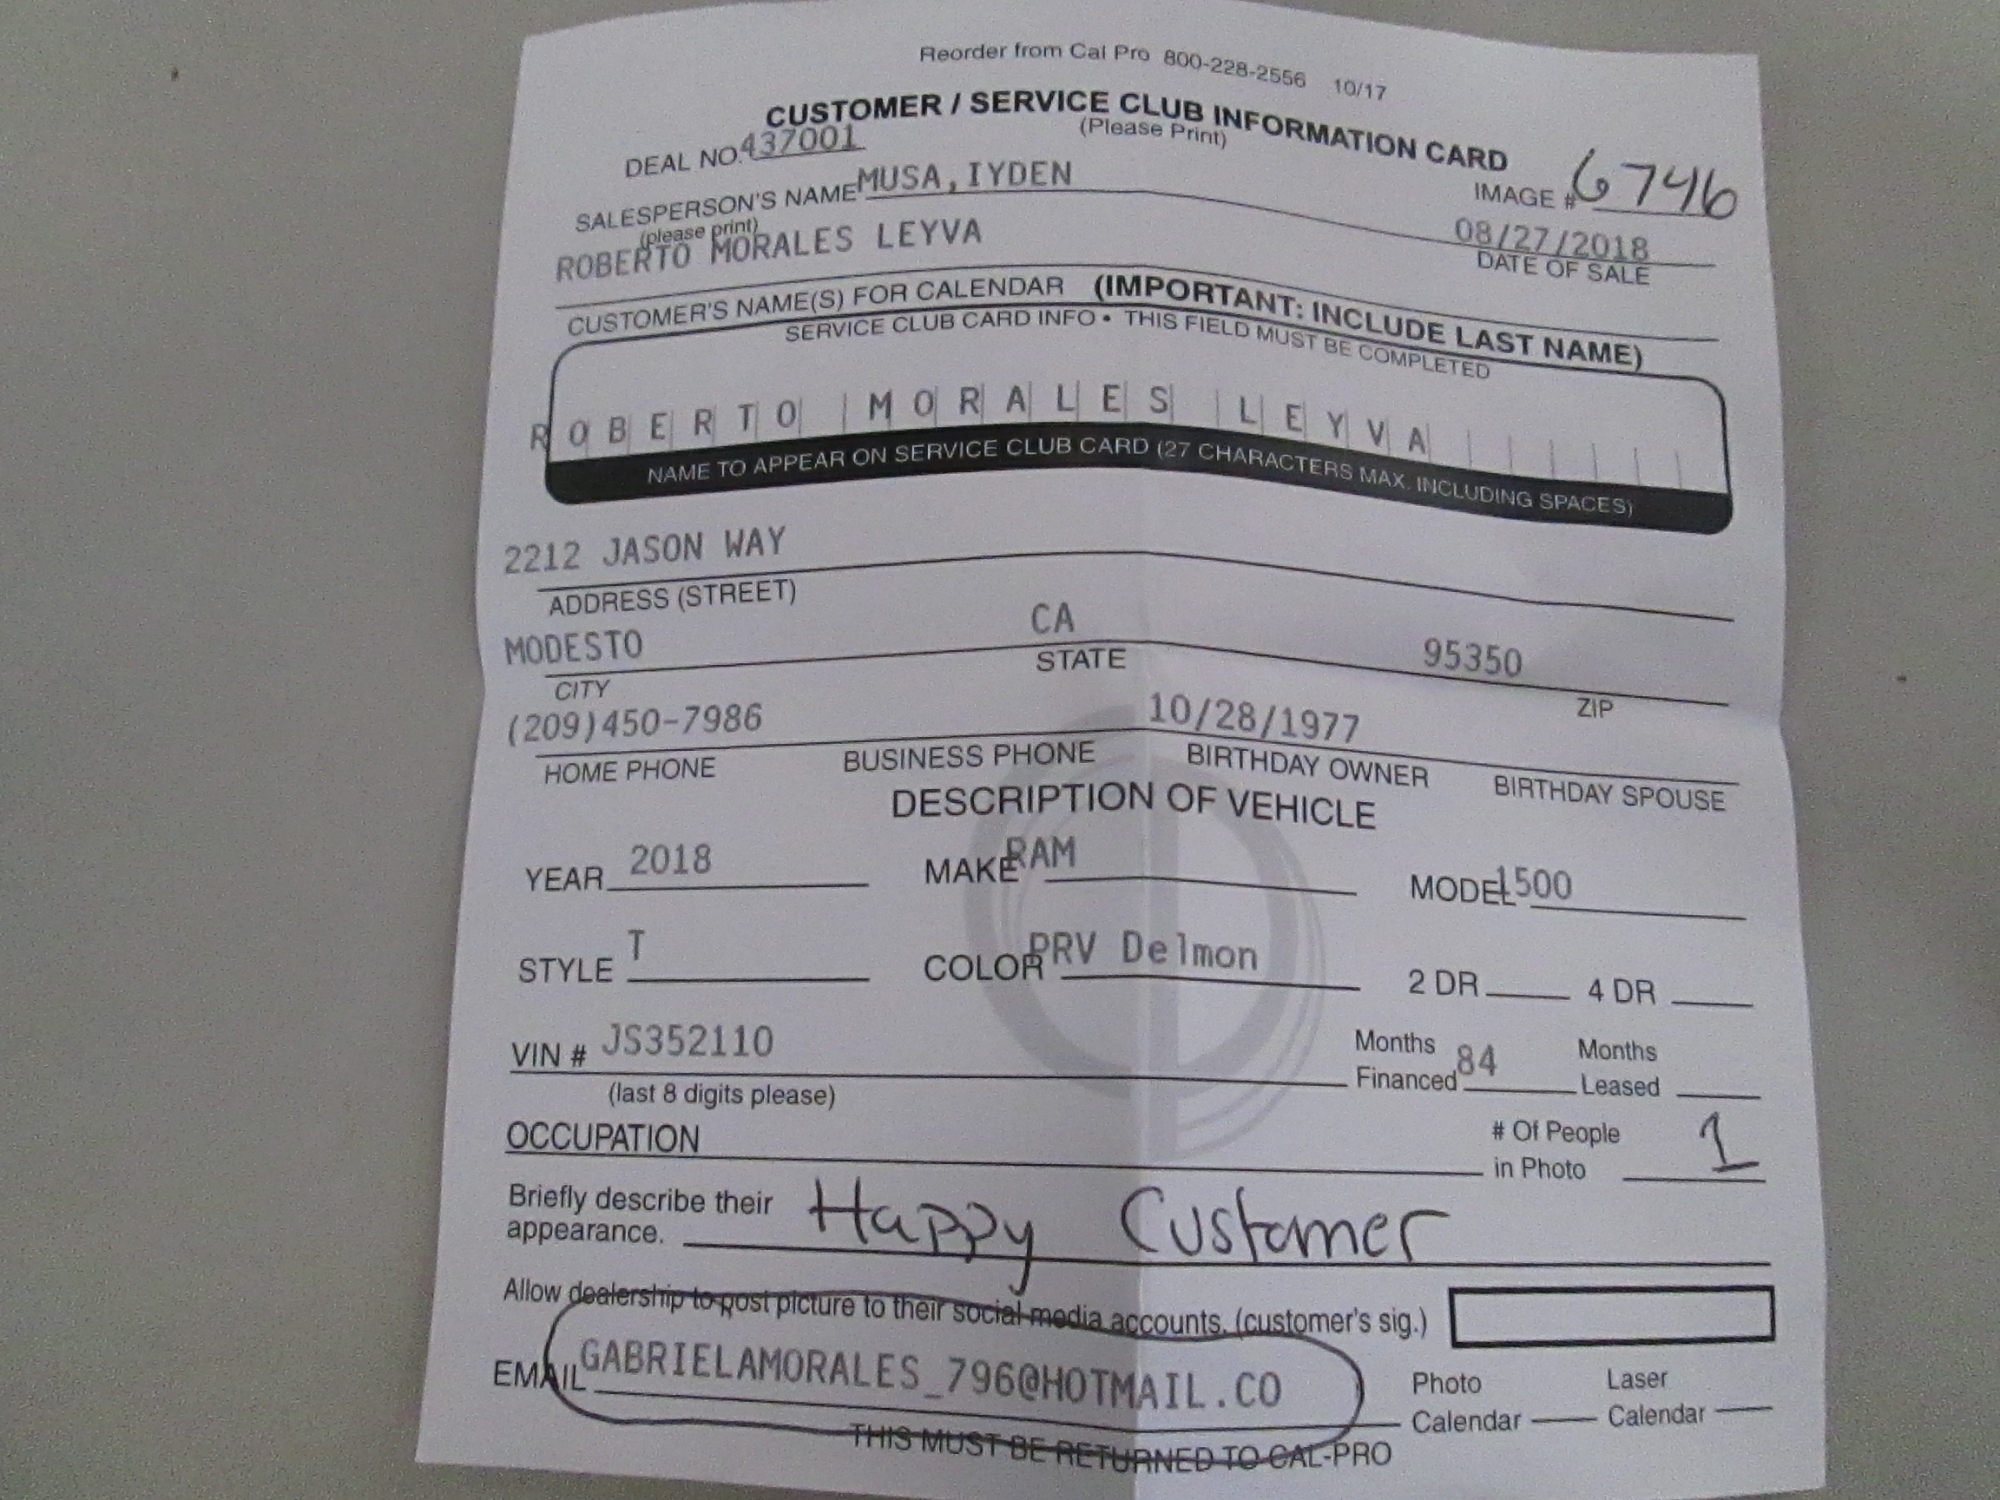 Reorder from Cal Pro 800-228-2556 10/17
CUSTOMER / SERVICE CLUB INFORMATION CARD
(Please Print)
DEAL NO. 437001
IMAGE # 6746
SALESPERSON'S NAME MUSA, IYDEN
(please print)
08/27/2018
DATE OF SALE
ROBERTO MORALES LEYVA
CUSTOMER'S NAME(S) FOR CALENDAR (IMPORTANT: INCLUDE LAST NAME)
SERVICE CLUB CARD INFO • THIS FIELD MUST BE COMPLETED
ROBERTO MORALES LEYVA
NAME TO APPEAR ON SERVICE CLUB CARD (27 CHARACTERS MAX. INCLUDING SPACES)
2212 JASON WAY
ADDRESS (STREET)
MODESTO CA 95350
CITY STATE ZIP
(209)450-7986 10/28/1977
HOME PHONE BUSINESS PHONE BIRTHDAY OWNER BIRTHDAY SPOUSE
DESCRIPTION OF VEHICLE
YEAR 2018 MAKE RAM MODEL 1500
STYLE T COLOR PRV Delmon 2 DR 4 DR
VIN # JS352110 Months Financed 84 Months Leased
(last 8 digits please)
OCCUPATION # Of People in Photo 1
Briefly describe their appearance. Happy Customer
Allow dealership to post picture to their social media accounts. (customer's sig.)
EMAIL GABRIELAMORALES_796@HOTMAIL.CO Photo Calendar Laser Calendar
THIS MUST BE RETURNED TO CAL-PRO